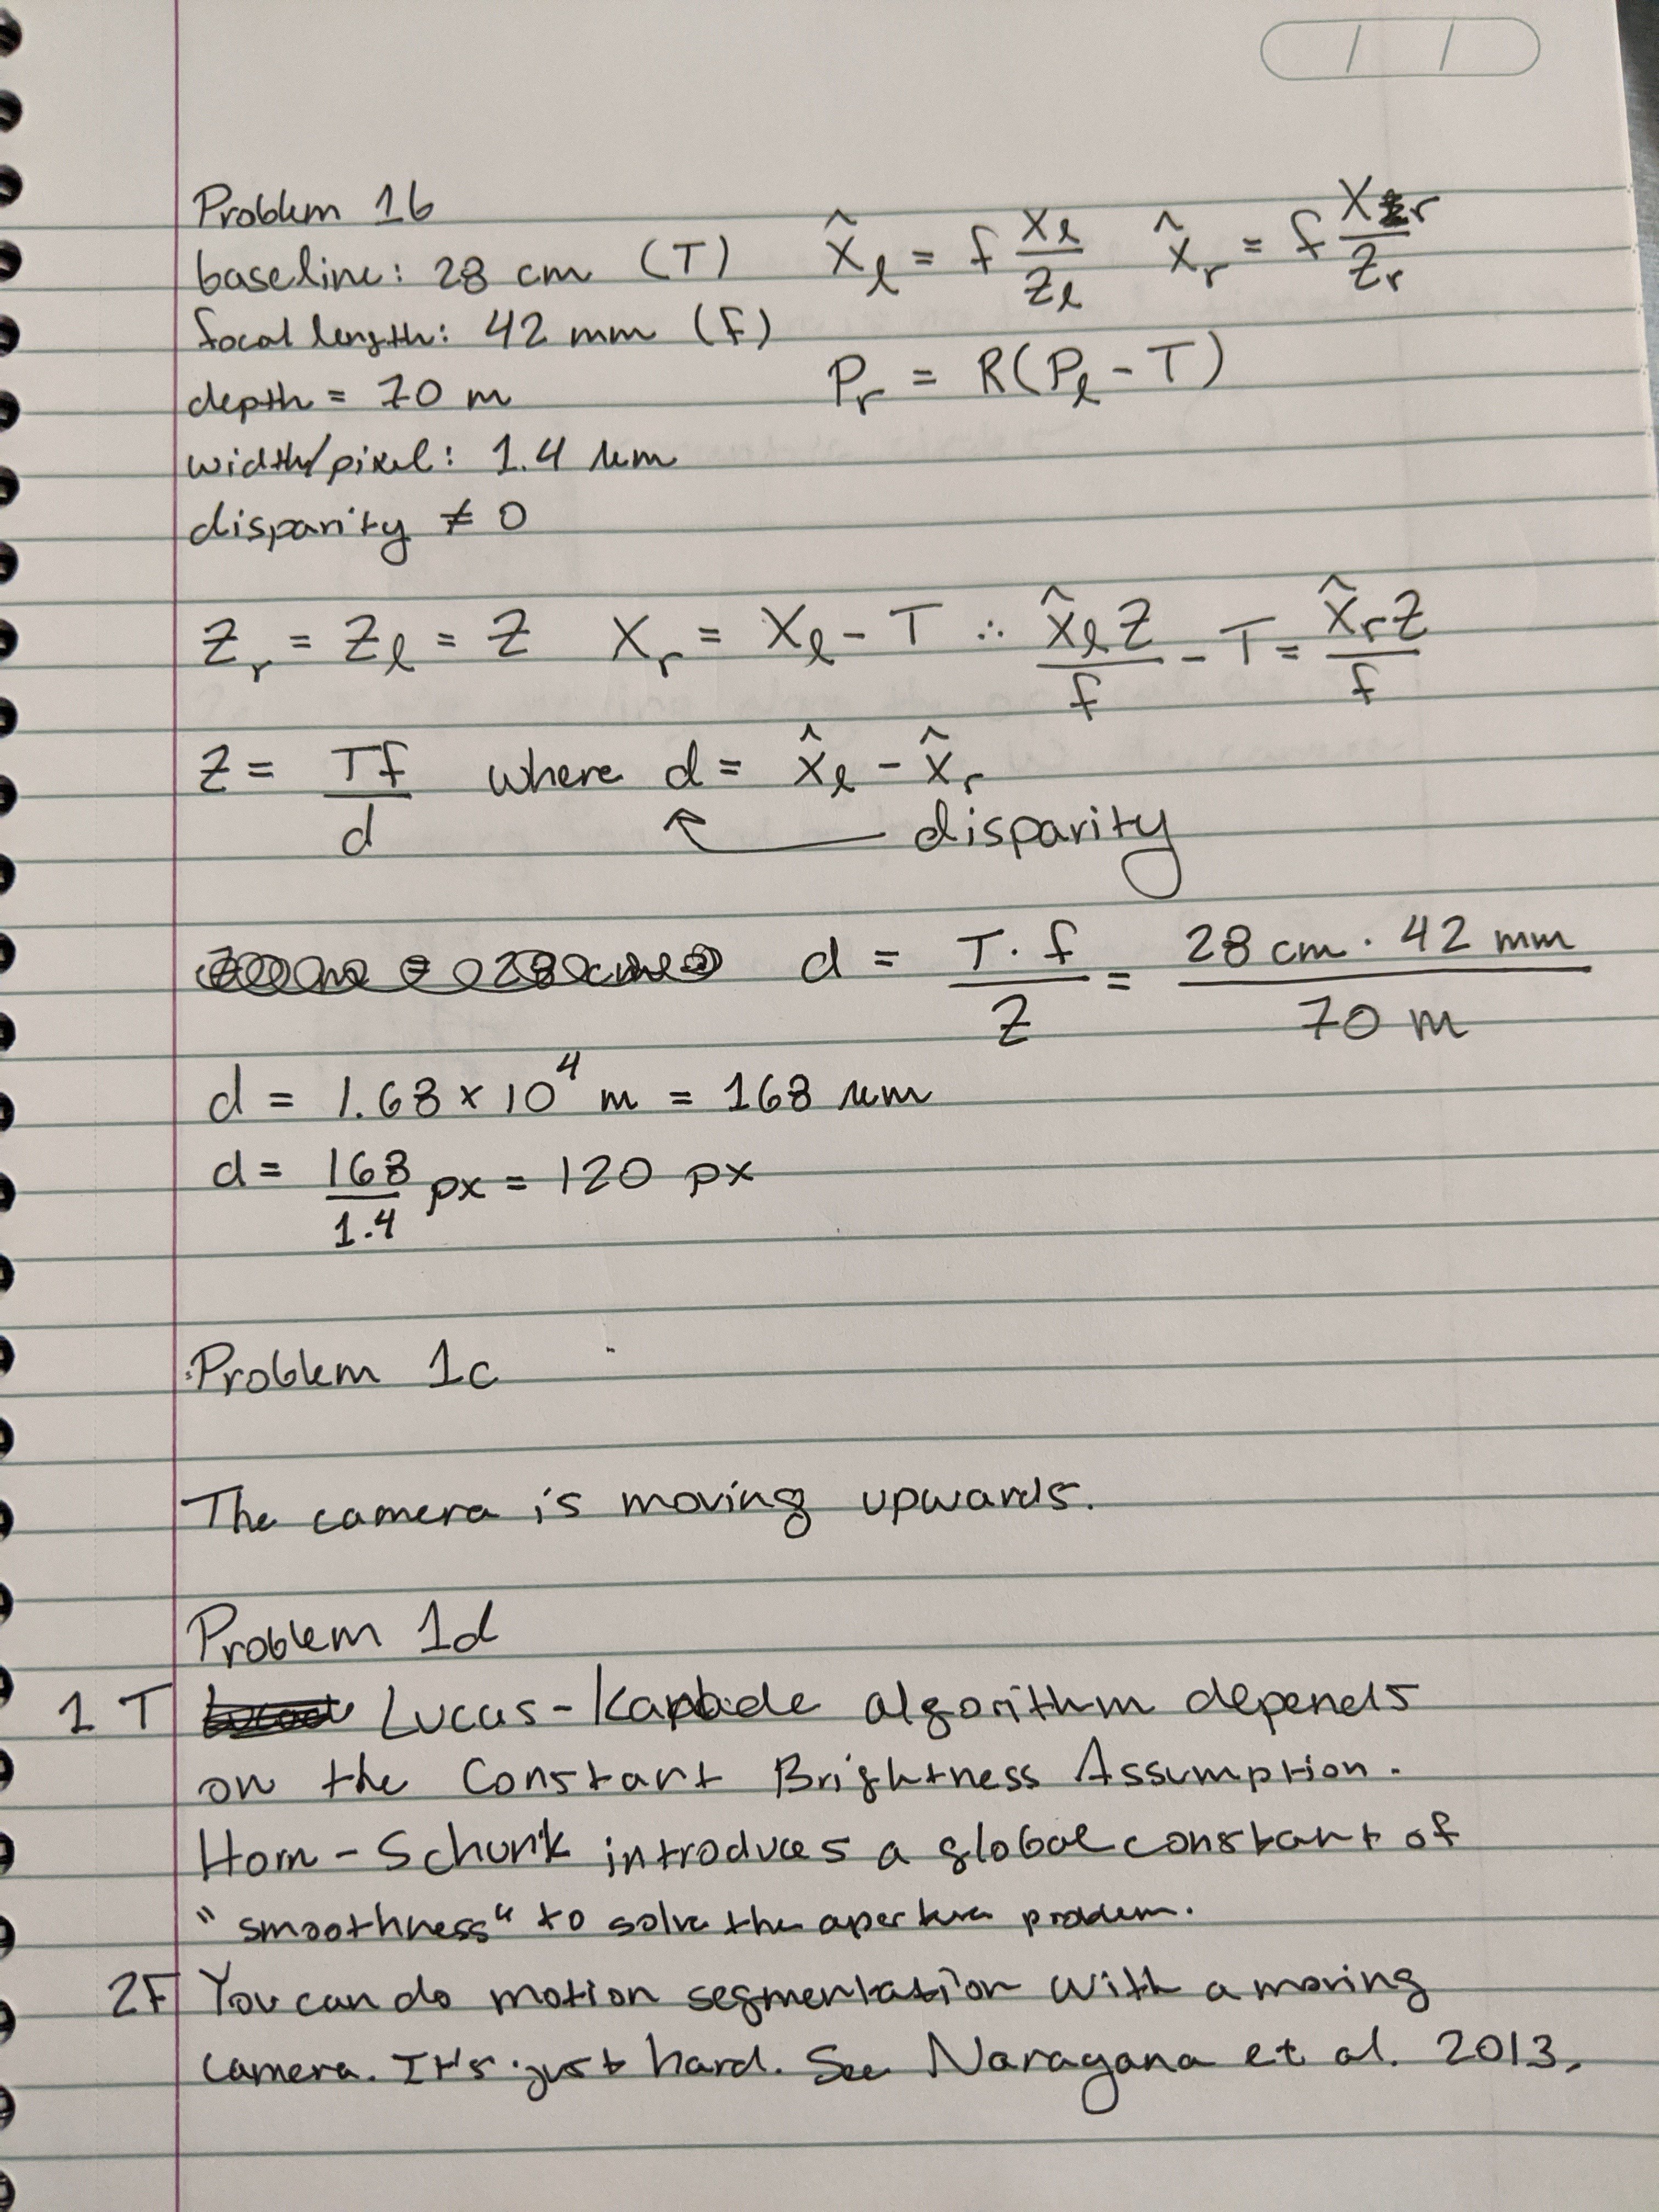 Problem 1b
baseline: 28 cm (T) x̂_l = f X_l/Z_l x̂_r = f X_r/Z_r
focal length: 42 mm (f)
depth = 70 m P_r = R(P_l - T)
width/pixel: 1.4 µm
disparity ≠ 0
Z_r = Z_l = Z X_r = X_l - T ∴ x̂_l Z/f - T = x̂_r Z/f
Z = Tf/d where d = x̂_l - x̂_r
disparity
d = T·f/Z = 28 cm · 42 mm/70 m
d = 1.68 × 10^4 m = 168 µm
d = 168/1.4 px = 120 px
Problem 1c
The camera is moving upwards.
Problem 1d
1 T Lucas-Kanade algorithm depends
on the Constant Brightness Assumption.
Horn-Schunk introduces a global constant of
"smoothness" to solve the aperture problem.
2F You can do motion segmentation with a moving
camera. It's just hard. See Narayana et al. 2013.